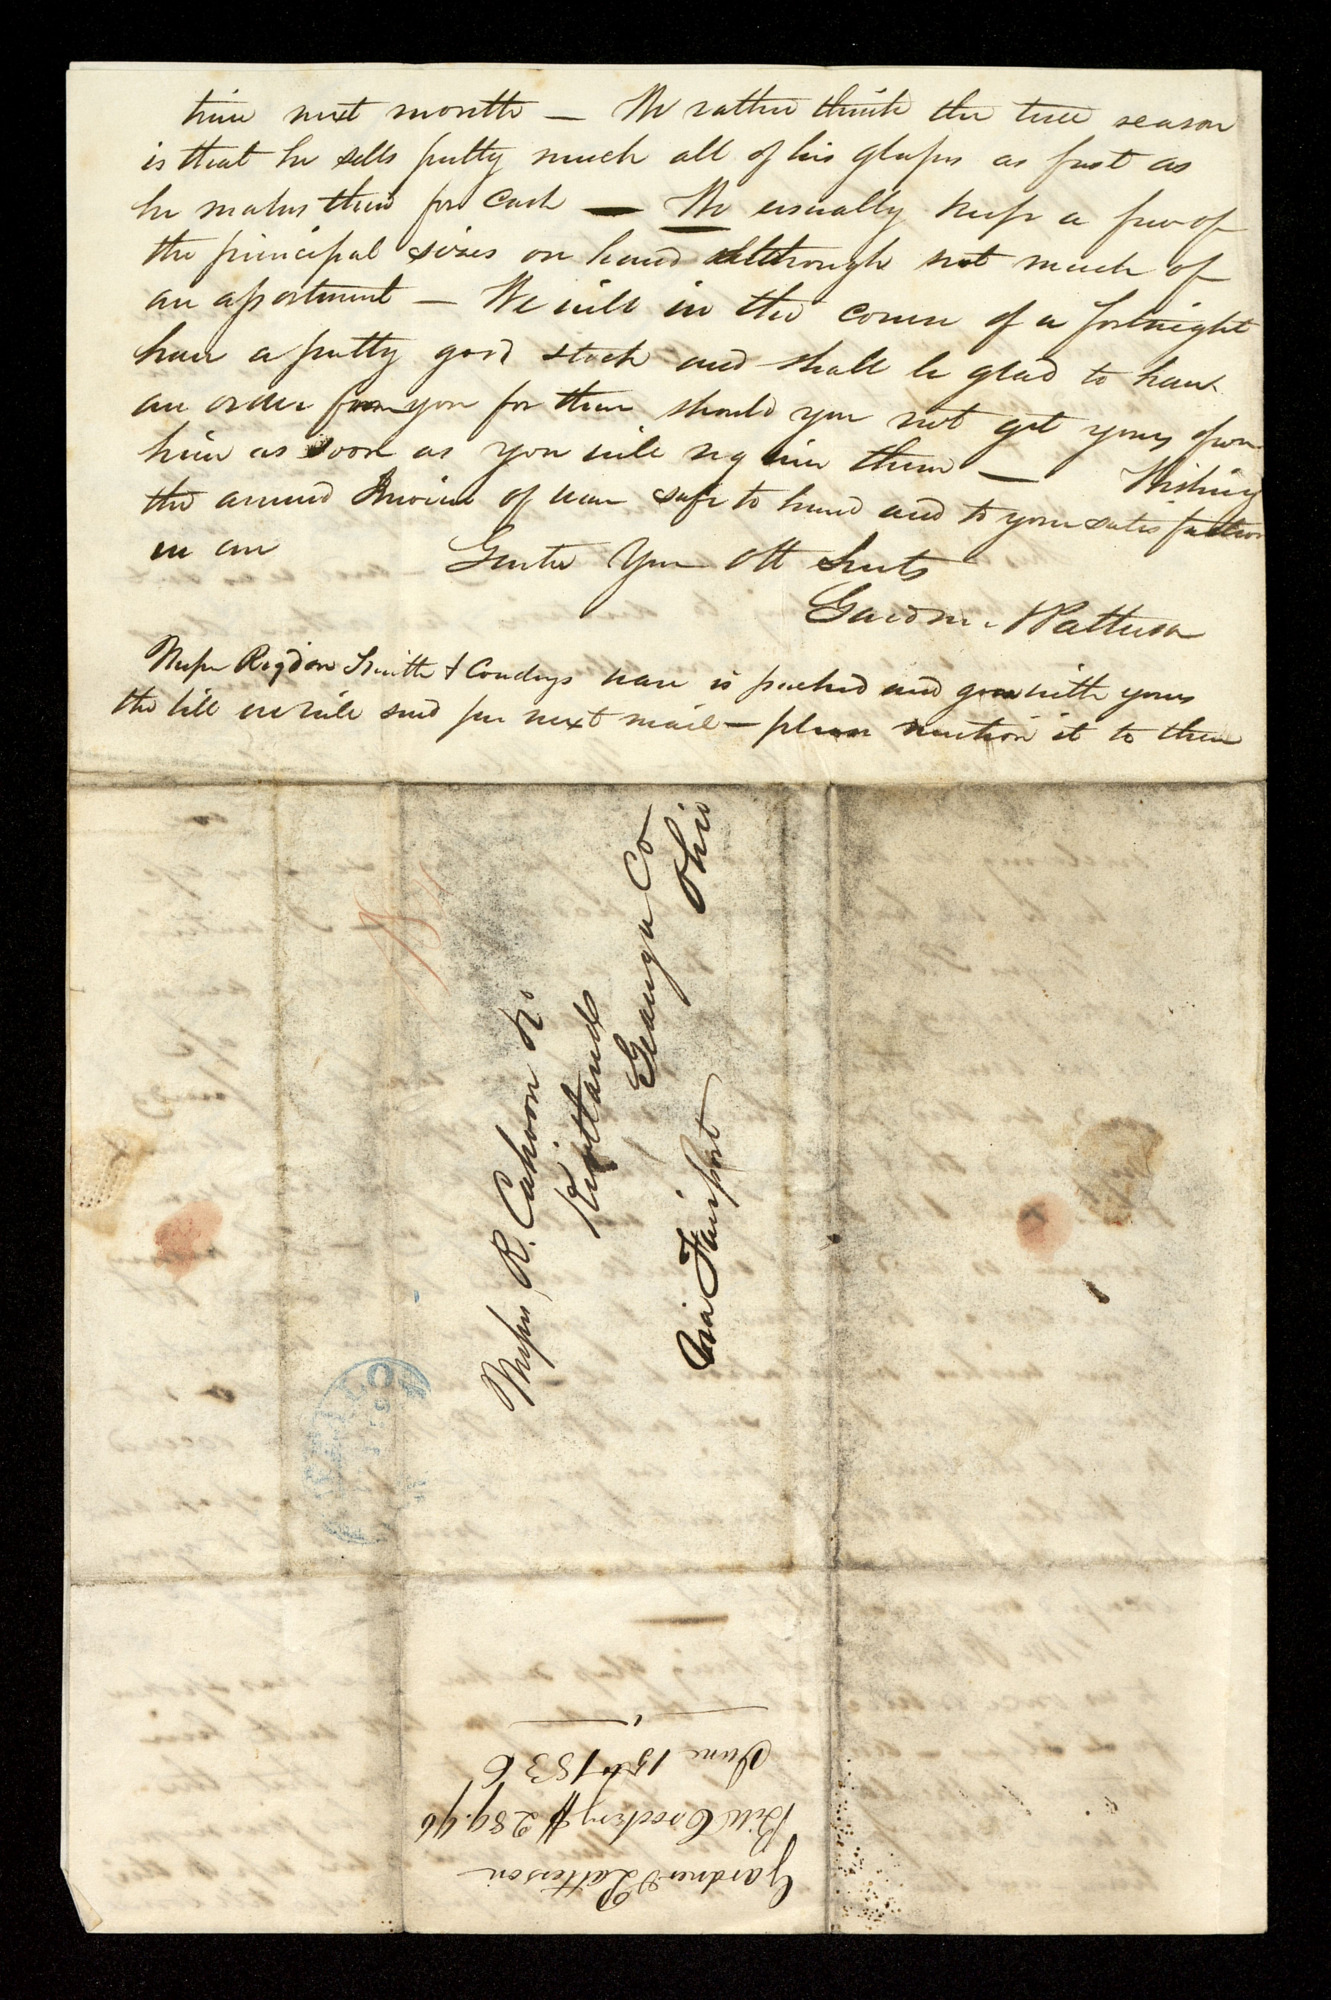 time next month — We rather think the true reason
is that he sells pretty much all of his glass as fast as
he makes them for Cash — We usually keep a few of
the principal sizes on hand although not much of
an assortment — We will in the course of a fortnight
have a pretty good stock and shall be glad to have
an order from you for them should you not get yours from
him as soon as you will require them — Wishing
the annexed Invoice of ware safe to hand and to your satisfaction
we are Gents Your Obt Servts
Gardner & Patterson
Messrs Rigdon Smith & Cowdrys ware is packed and goes with yours
the bill we will send per next mail — please mention it to them
Messrs, R. Cahoon & Co
Kirtland
Geauga Co
Ohio
Via Fairport
Gardner & Patterson
Bill Crockery $289.96
June 15th 1836